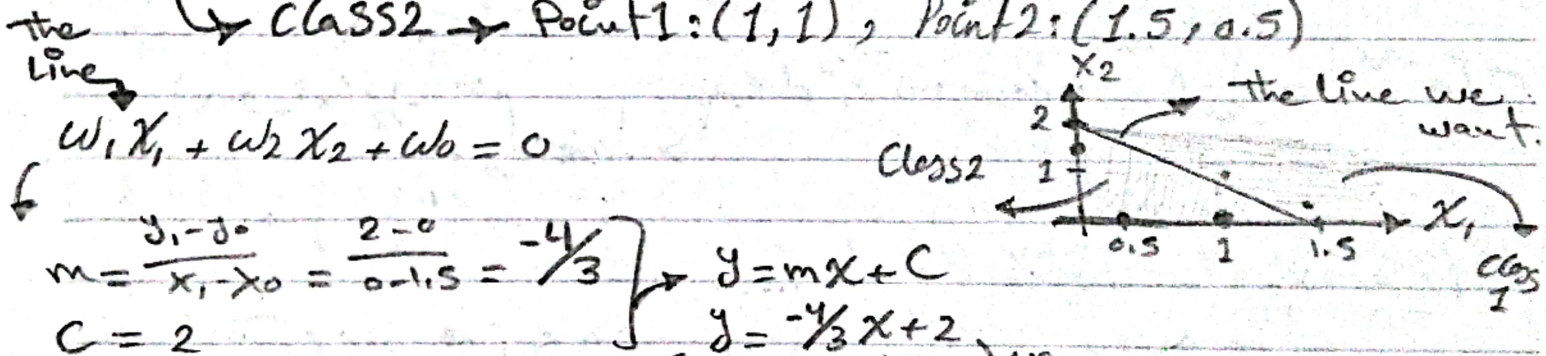 the ↳ Class2 → Point1:(1,1), Point2:(1.5,0.5)
Line
w₁X₁ + w₂X₂ + w₀ = 0
m = y₁-y₀/x₁-x₀ = 2-0/0-1.5 = -4/3
C = 2
y = mx + C
y = -4/3 x + 2
X₂
the line we
want.
2
Class2
1
X₁
0.5 1 1.5
Class
1